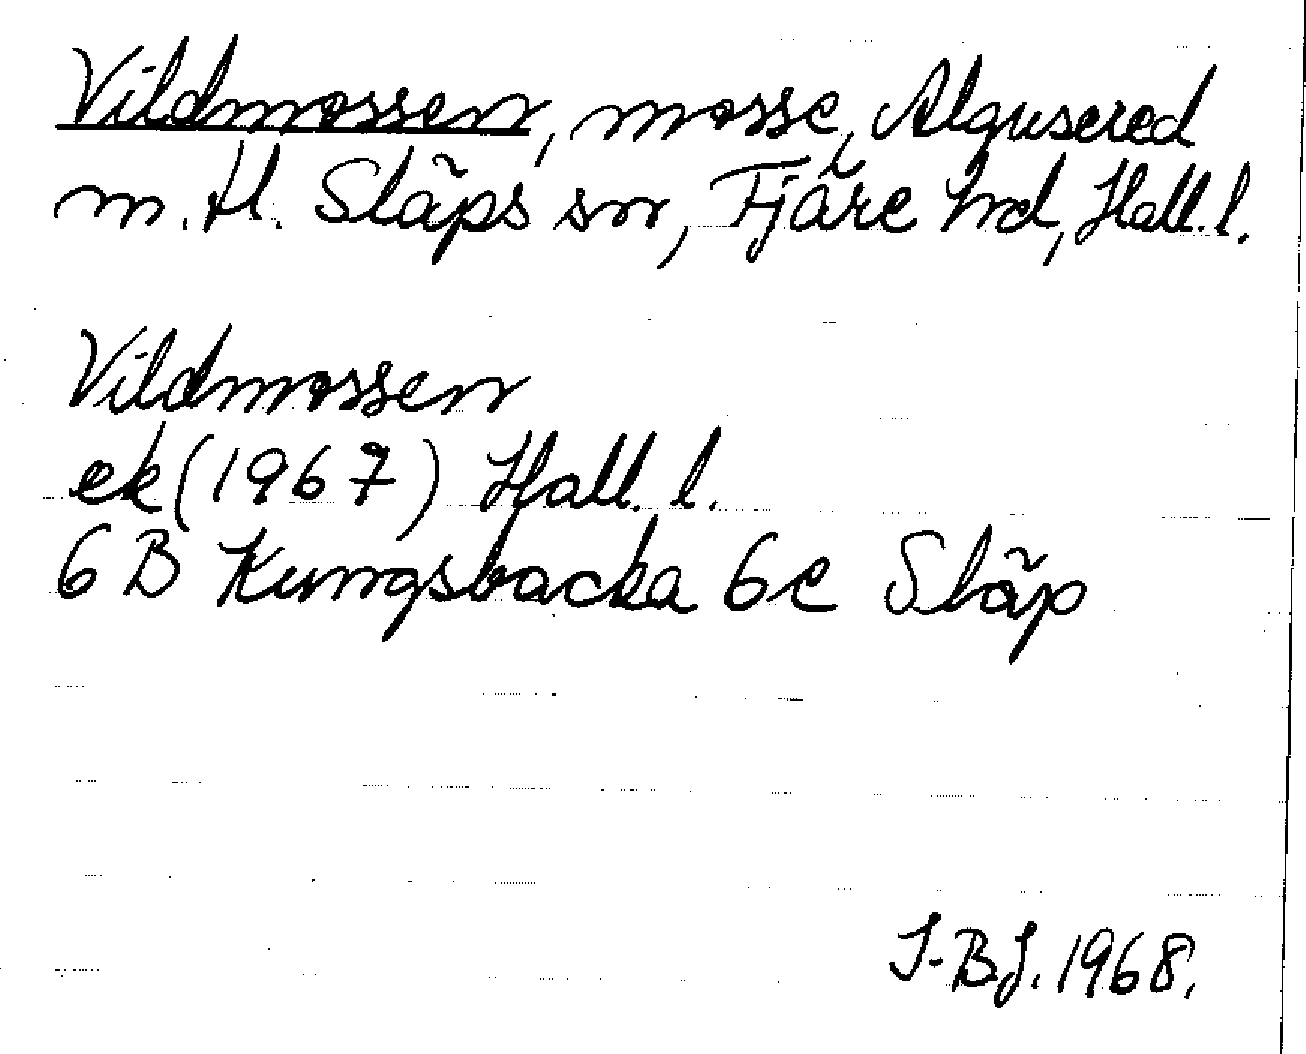 Vildmossen, mosse, Algusered
m. fl. Släps sn, Fjäre hd, Hall. l.
Vildmossen
ek (1967) Hall. l.
6 B Kungsbacka 6 c Släp
I-B.J. 1968.